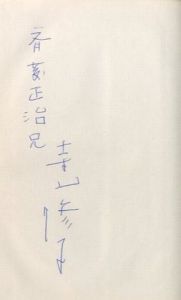 斉藤正治兄
寺山修司